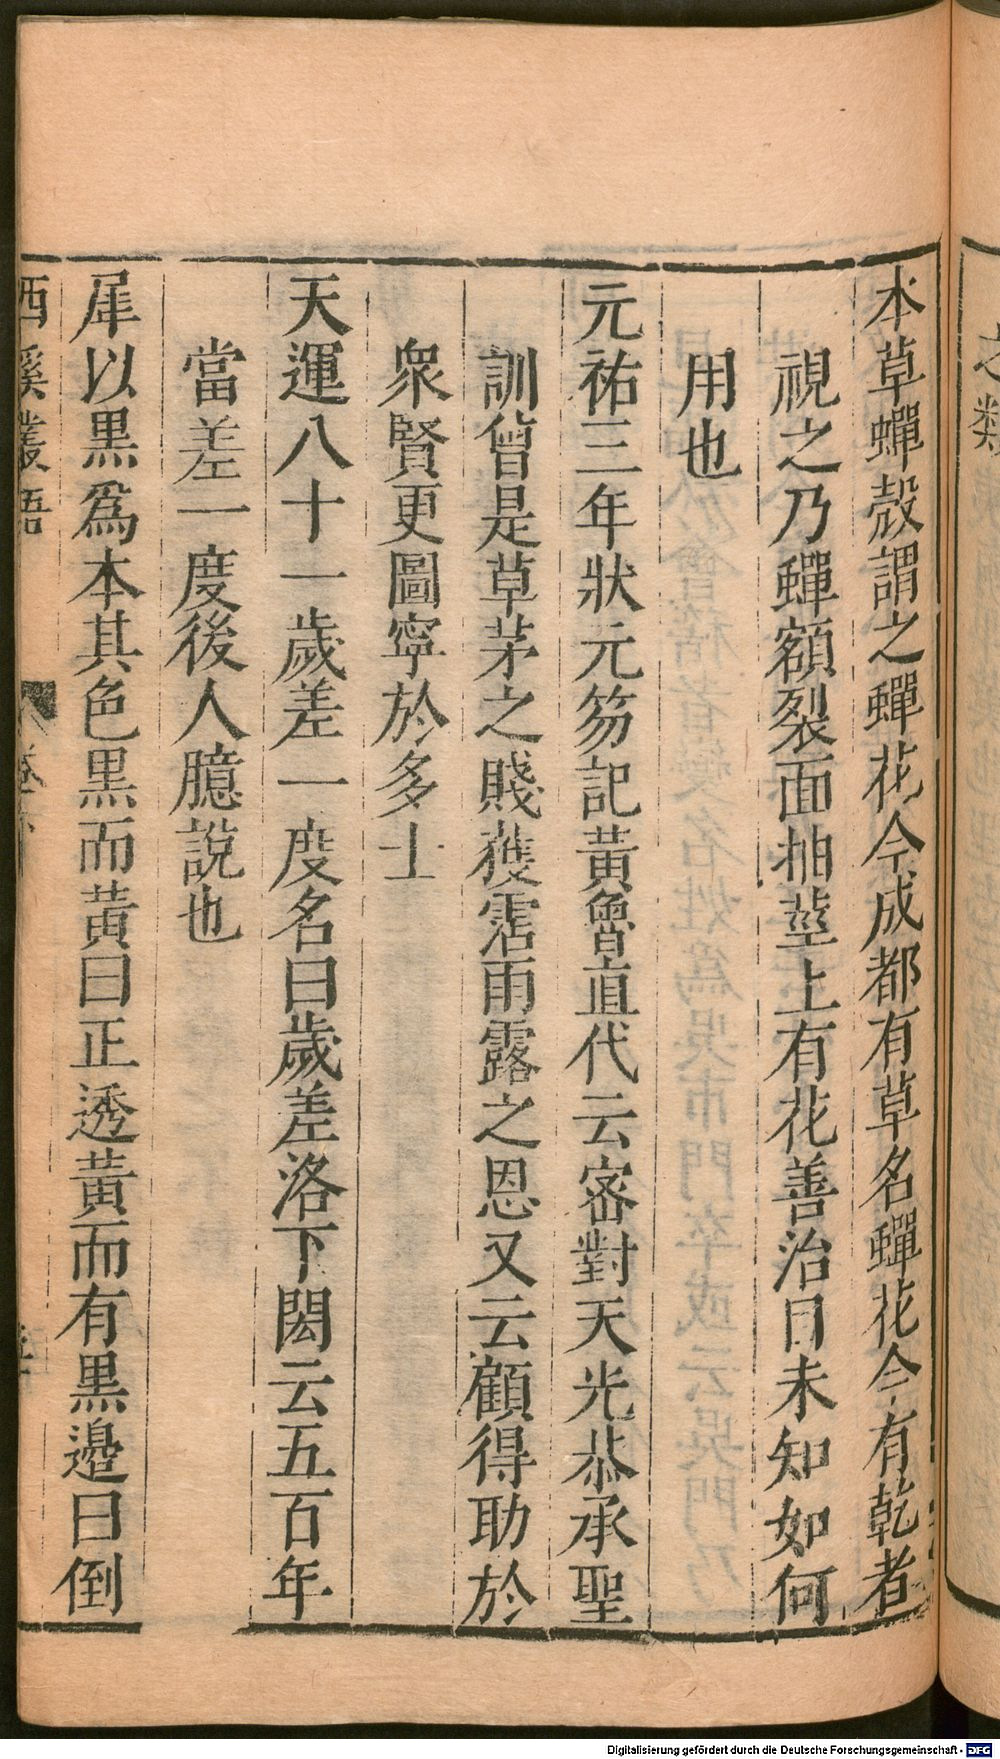 之類
本草蟬殼謂之蟬花今成都有草名蟬花今有乾者
視之乃蟬額裂面抽莖上有花善治目未知如何
用也
元祐三年狀元笏記黃魯直代云密對天光恭承聖
訓曾是草茅之賤獲霑雨露之恩又云顧得助於
衆賢更圖寧於多士
天運八十一歲差一度名曰歲差洛下閎云五百年
當差一度後人臆說也
犀以黒爲本其色黒而黃曰正透黃而有黒邉曰倒
西溪叢語 卷下
Digitalisierung gefördert durch die Deutsche Forschungsgemeinschaft - DFG